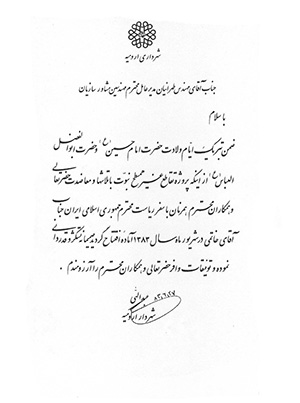 شهرداری ارومیه
جناب آقای مهندس طهرانیان مدیرعامل محترم مهندسین مشاور سازیان
با سلام
ضمن تبریک ایام ولادت حضرت امام حسین (ع) و حضرت ابوالفضل
العباس (ع) از اینکه پروژه تقاطع غیر همسطح نبوت با تلاشها و معاضدت حضرتعالی
و همکاران محترم همزمان با سفر ریاست محترم جمهوری اسلامی ایران جناب
آقای خاتمی در شهریور ماه سال ۱۳۸۳ آماده افتتاح گردید صمیمانه تشکر و قدردانی
نموده و توفیقات وافر حضرتعالی و همکاران محترم را آرزومندم .
۸۳،۶،۲۷
شهردار ارومیه